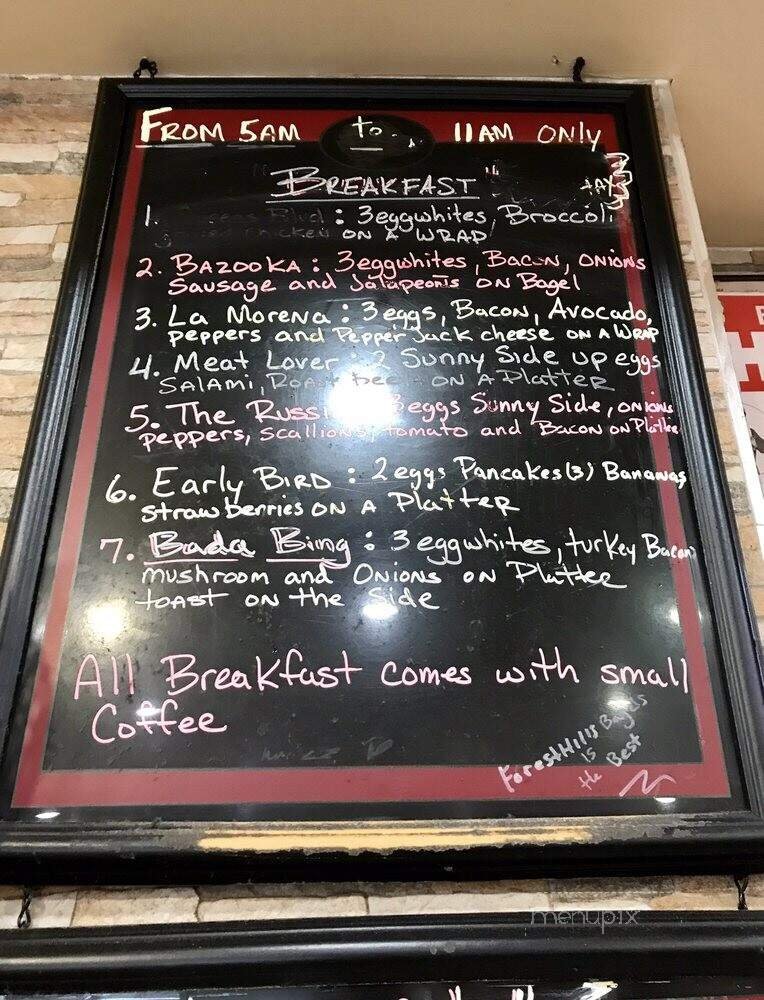 FROM 5AM to 11AM ONLY
"BREAKFAST"
1. Blvd : 3eggwhites, Broccoli
chicken ON A WRAP
2. BAZOOKA : 3eggwhites, Bacon, ONIONS
Sausage and Jalapeños ON Bagel
3. La Morena : 3 eggs, BACON, Avocado,
peppers and Pepper Jack cheese ON A WRAP
4. Meat Lover : 2 Sunny Side up eggs
SALAMI, ROAST beef ON A Platter
5. The Russi 3eggs Sunny Side, ONIONS
peppers, scallions, tomato and BACON ON Platter
6. Early BIRD : 2 eggs Pancakes (3) Bananas
strawberries ON A Platter
7. Bada Bing : 3 eggwhites, turkey Bacon
mushroom and ONIONS ON Plattee
toAST ON the Side
All Breakfast comes with small
Coffee
Forest Hills Bagels
is
the Best
menupix